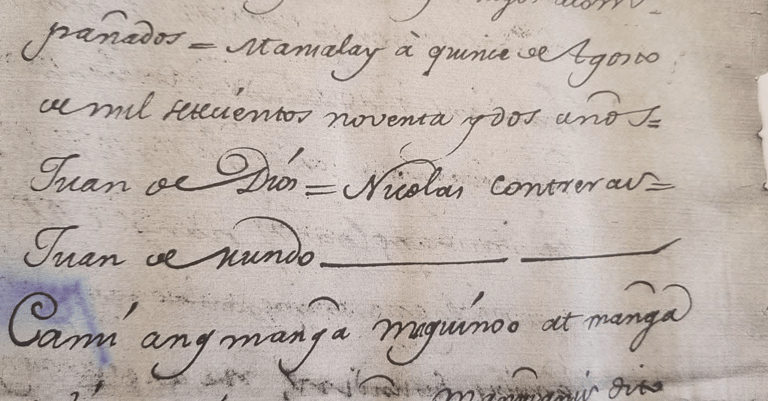 pañados = Mamalay à quince de Agosto
de mil setecientos noventa y dos años =
Juan de Diós = Nicolas Contreras =
Juan de Mundo
Camí ang manga maguínoo at manga